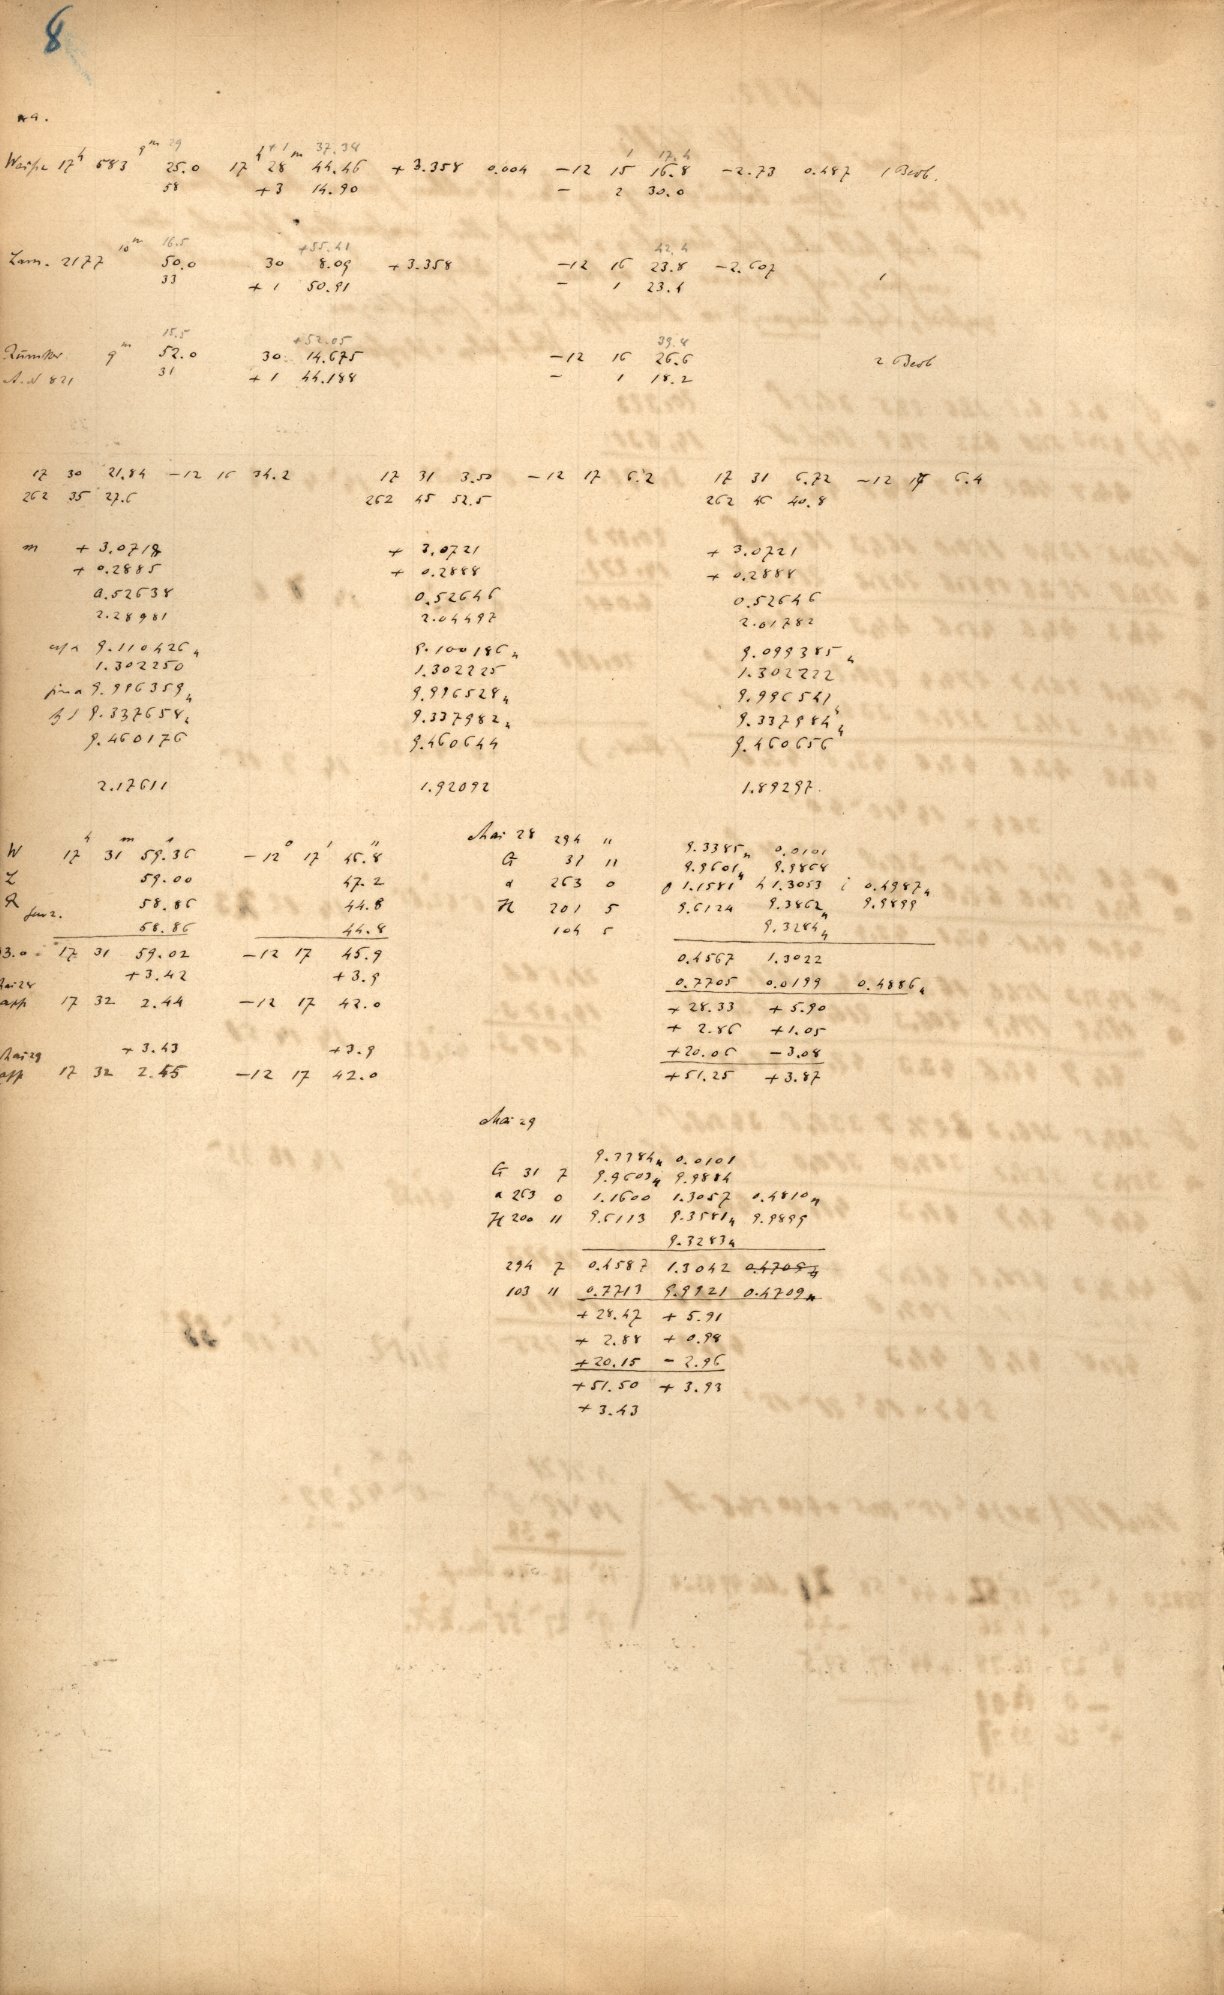 8
*a.
9ᵐ 29 +1 37.34 1 17.4
Weisse 17ʰ 583 25.0 17ʰ 28ᵐ 44.46 +3.358 0.004 −12 15 16.8 −2.73 0.487 1 Beob.
58 +3 14.90 − 2 30.0
10ᵐ 16.5 +55.41 42.4
Lam. 2177 50.0 30 8.09 +3.358 −12 16 23.8 −2.607 1
33 +1 50.91 − 1 23.4
15.5 +52.05 39.8
Rümker 9ᵐ 52.0 30 14.675 −12 16 26.6 2 Beob
A.N 821 31 +1 44.188 − 1 18.2
17 30 21.84 −12 16 34.2 17 31 3.50 −12 17 6.2 17 31 6.72 −12 17 6.4
262 35 27.6 262 45 52.5 262 46 40.8
m +3.0718 +3.0721 +3.0721
+0.2885 +0.2888 +0.2888
0.52638 0.52646 0.52646
2.28981 2.04497 2.01782
cos a 9.110426n 9.100186n 9.099385n
1.302250 1.302225 1.302222
sin a 9.996359n 9.996528n 9.996541n
tg δ 9.337658n 9.337982n 9.337984n
9.460176 9.460644 9.460656
2.17611 1.92092 1.89297.
Mai 28 294 "
W 17ʰ 31ᵐ 59.36 −12° 17' 45.8" G 31 " 9.3385n 0.0101
9.9601n 9.9868
L 59.00 47.2 a 263 0 g 1.1581 h 1.3053 i 0.4987n
R 58.86 44.8 H 201 5 9.6124 9.3862n 9.9899
58.86 44.8 104 5 9.3284n
3.0 17 31 59.02 −12 17 45.9 0.4567 1.3022
+3.42 +3.9 0.7705 0.0199 0.4886n
Mai 28
app 17 32 2.44 −12 17 42.0 +28.33 +5.90
+2.86 +1.05
+3.43 +3.9 +20.06 −3.08
Mai 29
app 17 32 2.45 −12 17 42.0 +51.25 +3.87
Mai 29
9.3384n 0.0101
G 31 7 9.9603n 9.9884
a 263 0 1.1600 1.3057 0.4810n
H 200 11 9.6113 9.3581n 9.9899
9.3283n
294 7 0.4587 1.3042 0.4708n
103 11 0.7713 9.9921 0.4709n
+28.47 +5.91
+2.88 +0.98
+20.15 −2.96
+51.50 +3.93
+3.43